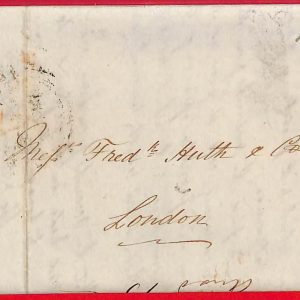 Mess.rs Fred.k Huth & Co
London